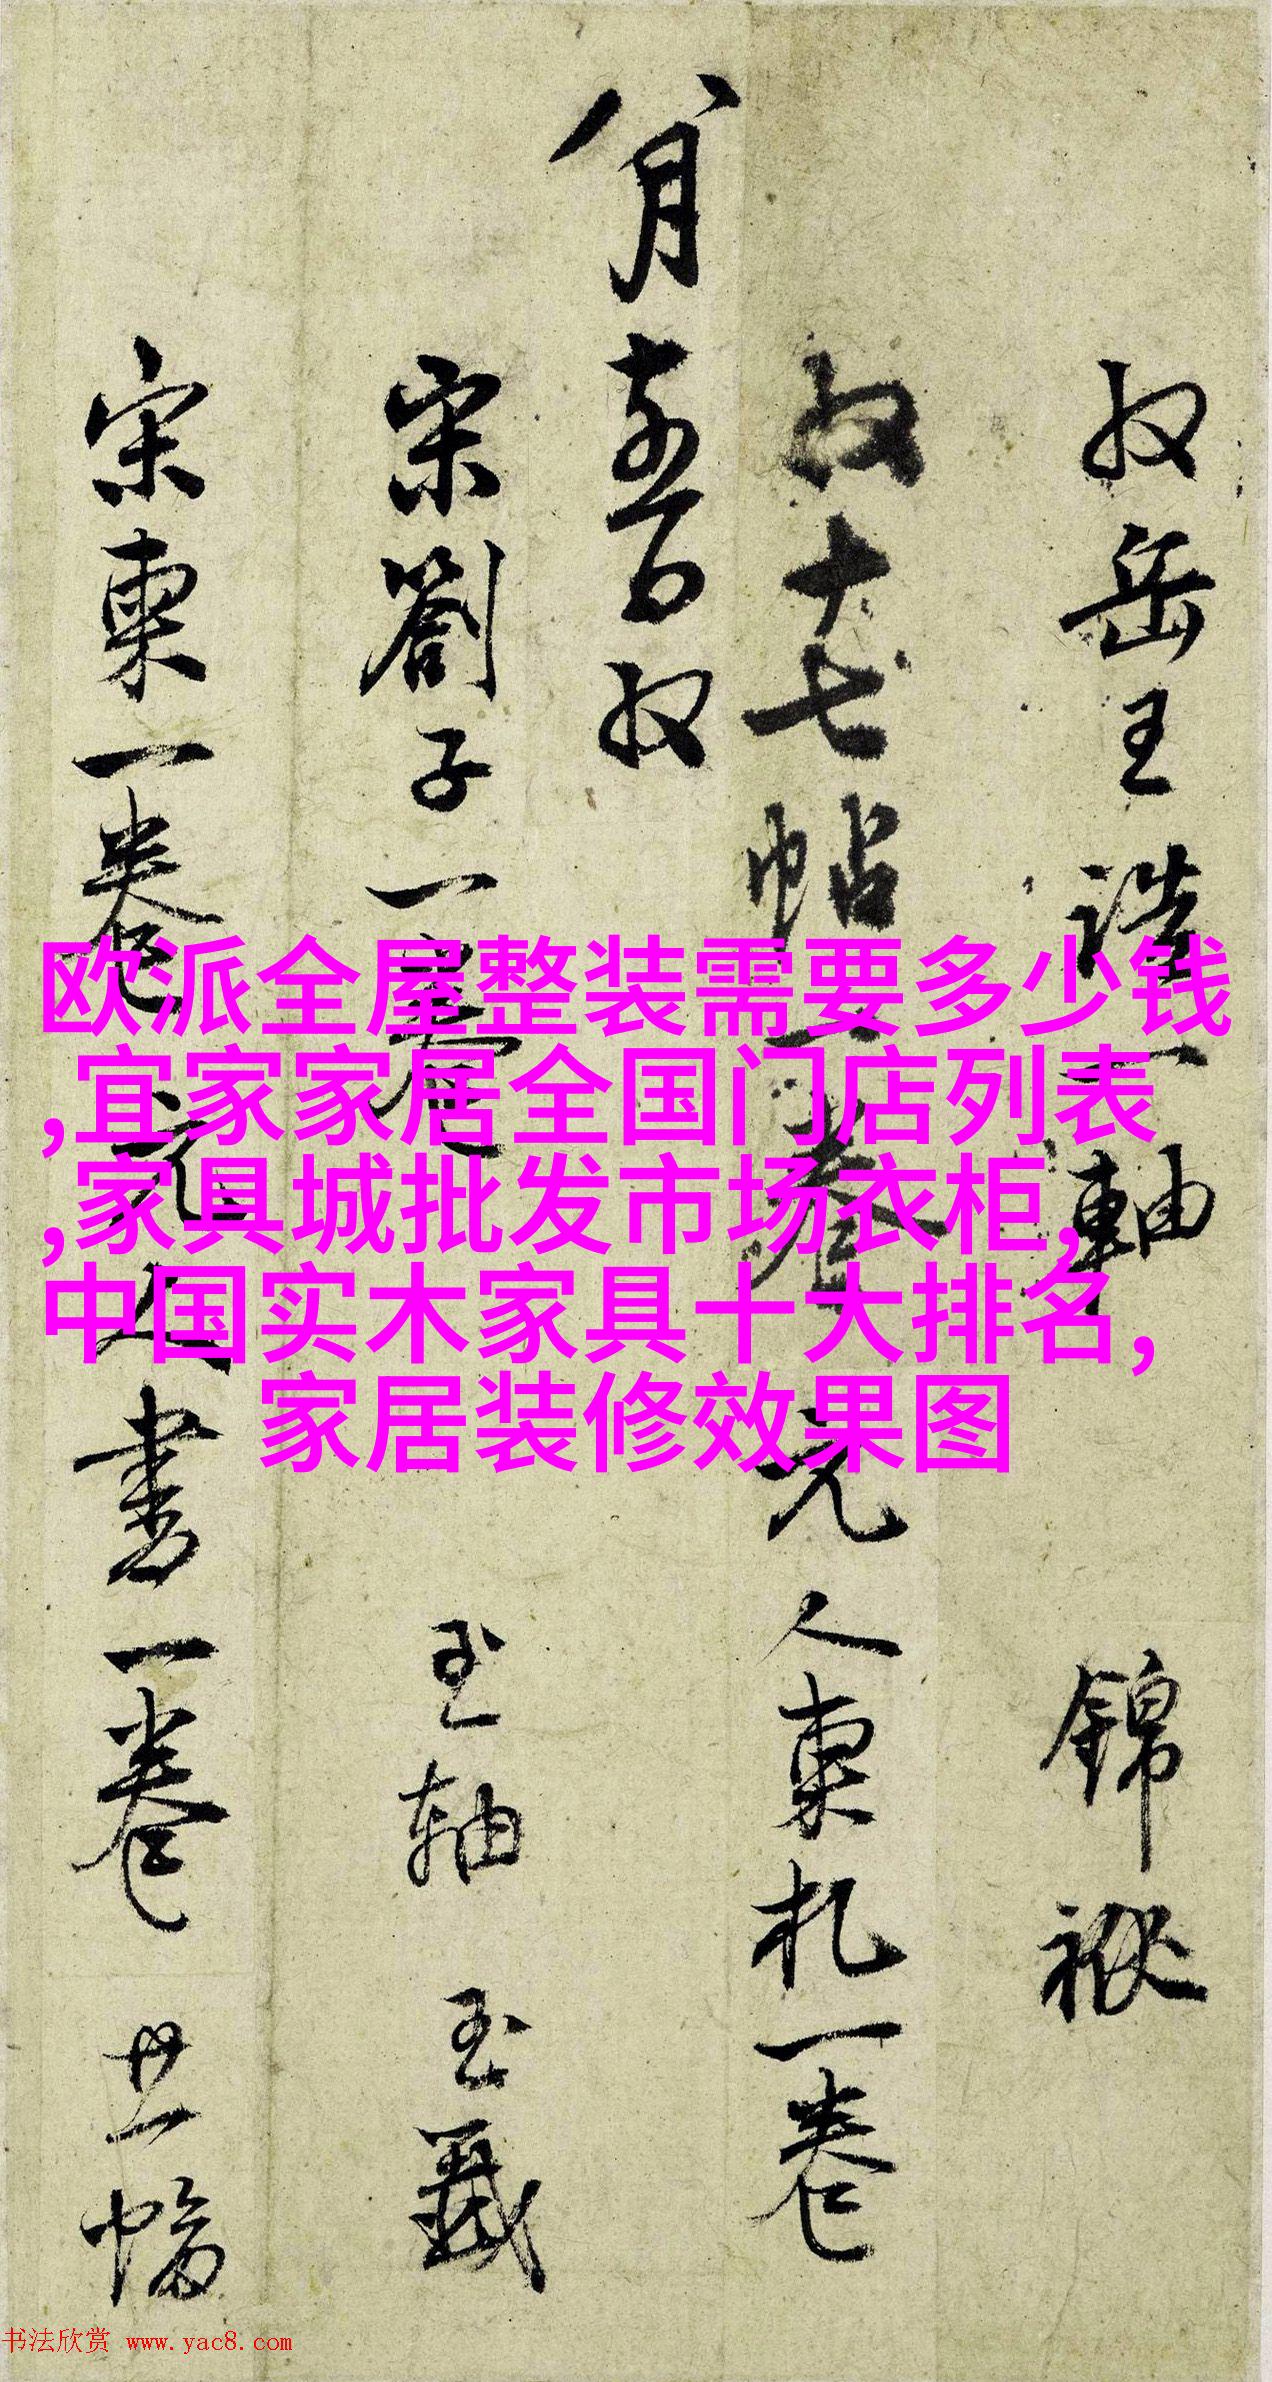 收岳王誥一軸 錦褫
收十七帖一卷 元人柬札一卷
八月
收
宋劄子一卷 玉軸 玉籤
宋柬一卷 元人書一卷 廿幅
欧派全屋整装需要多少钱
,宜家家居全国门店列表
,家具城批发市场衣柜,
中国实木家具十大排名,
家居装修效果图
书法欣赏 www.yac8.com